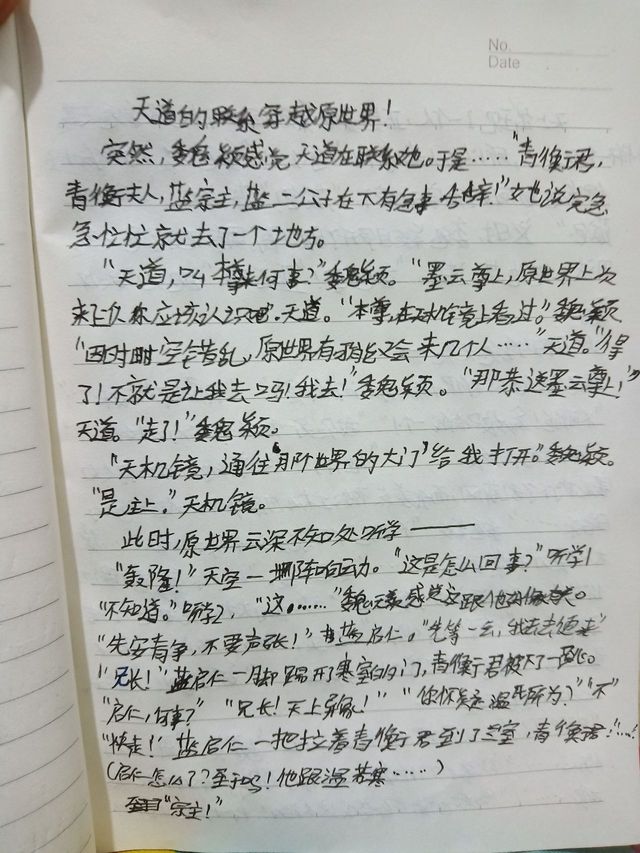 No.
Date
天道的联系 穿越原世界！
突然，魏颖感觉天道在联系她。于是……“青衡君，
青衡夫人，蓝宗主，蓝二公子在下有急事告辞！”她说完急
急忙忙就去了一个地方。
“天道，叫本尊来何事？”魏颖。“墨云尊上，原世界上次
来几人你应该认识吧。天道。“本尊在天机镜上看过。”魏颖
“因时时空错乱，原世界有可能又会来几个人……”天道。“得
了！不就是让我去吗！我去！”魏颖。“那恭送墨云尊上！”
天道。“走了！”魏颖。
“天机镜，通往那个世界的大门给我打开。”魏颖。
“是主上。”天机镜。
此时，原世界云深不知处听学——
“轰隆！”天空一阵响动。“这是怎么回事？”听学1
“不知道。”听学2，“这……”魏感觉跟他有关。
“先安青争，不要声张！”蓝启仁。“先等一会，我去去便来”
“兄长！”蓝启仁一脚踢开了寒室的门，青衡君被吓了一跳。
“启仁，何事？”“兄长！天上异象！”“你怀疑温氏所为？”“不”
“快走！”蓝启仁一把拉着青衡君到了兰室，青衡君：“……！
（启仁怎么了？至于吗！他跟温若寒……）
“宗主！”